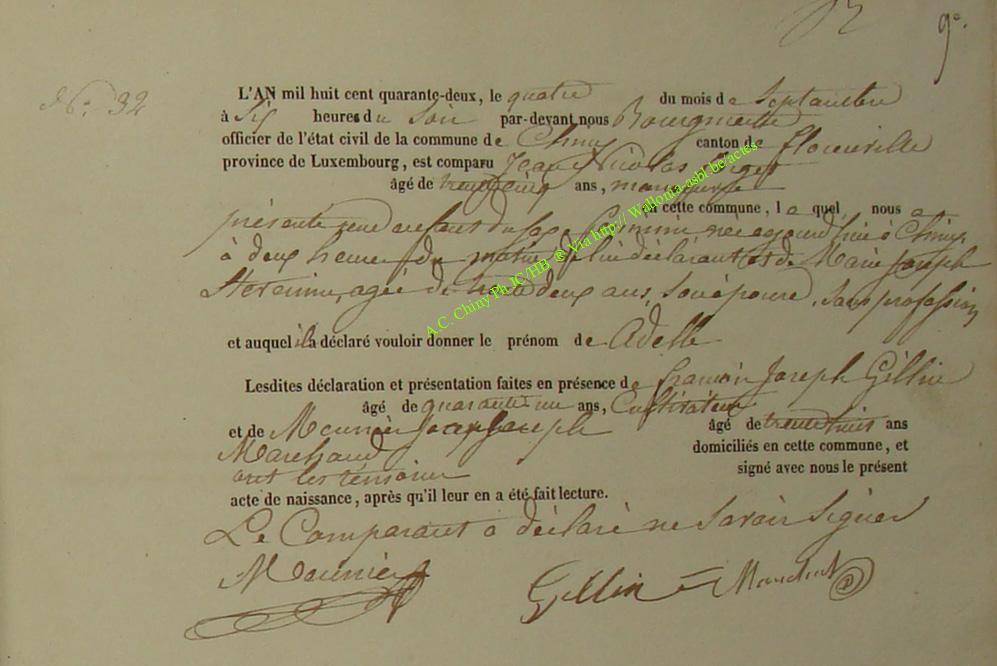 9e.
No. 32
L'AN mil huit cent quarante-deux, le quatre du mois de Septembre
à Six heures du Soir par-devant nous Bourgmestre
officier de l'état civil de la commune de Chiny canton de florenville
province de Luxembourg, est comparu Jean Nicolas
âgé de trente cinq ans, manoeuvre
en cette commune, l a quel nous a
présenté une enfant du Sexe feminin née aujourd'hui a Chiny
à deux heures du matin de lui déclarant et de Marie Joseph
agée de trente deux ans, Son épouse, Sans profession
et auquel il a déclaré vouloir donner le prénom de Adelle
Lesdites déclaration et présentation faites en présence de françois Joseph Gillin
âgé de quarante un ans, Cultivateur
et de Meunier Joseph âgé de trente huit ans
Marchand domiciliés en cette commune, et
ont les témoins signé avec nous le présent
acte de naissance, après qu'il leur en a été fait lecture.
Le Comparant a déclaré ne Savoir Signer
Meunier Gillin
A.C. Chiny Ph JC/HB ® Via http:// Wallonia-asbl.be/actes